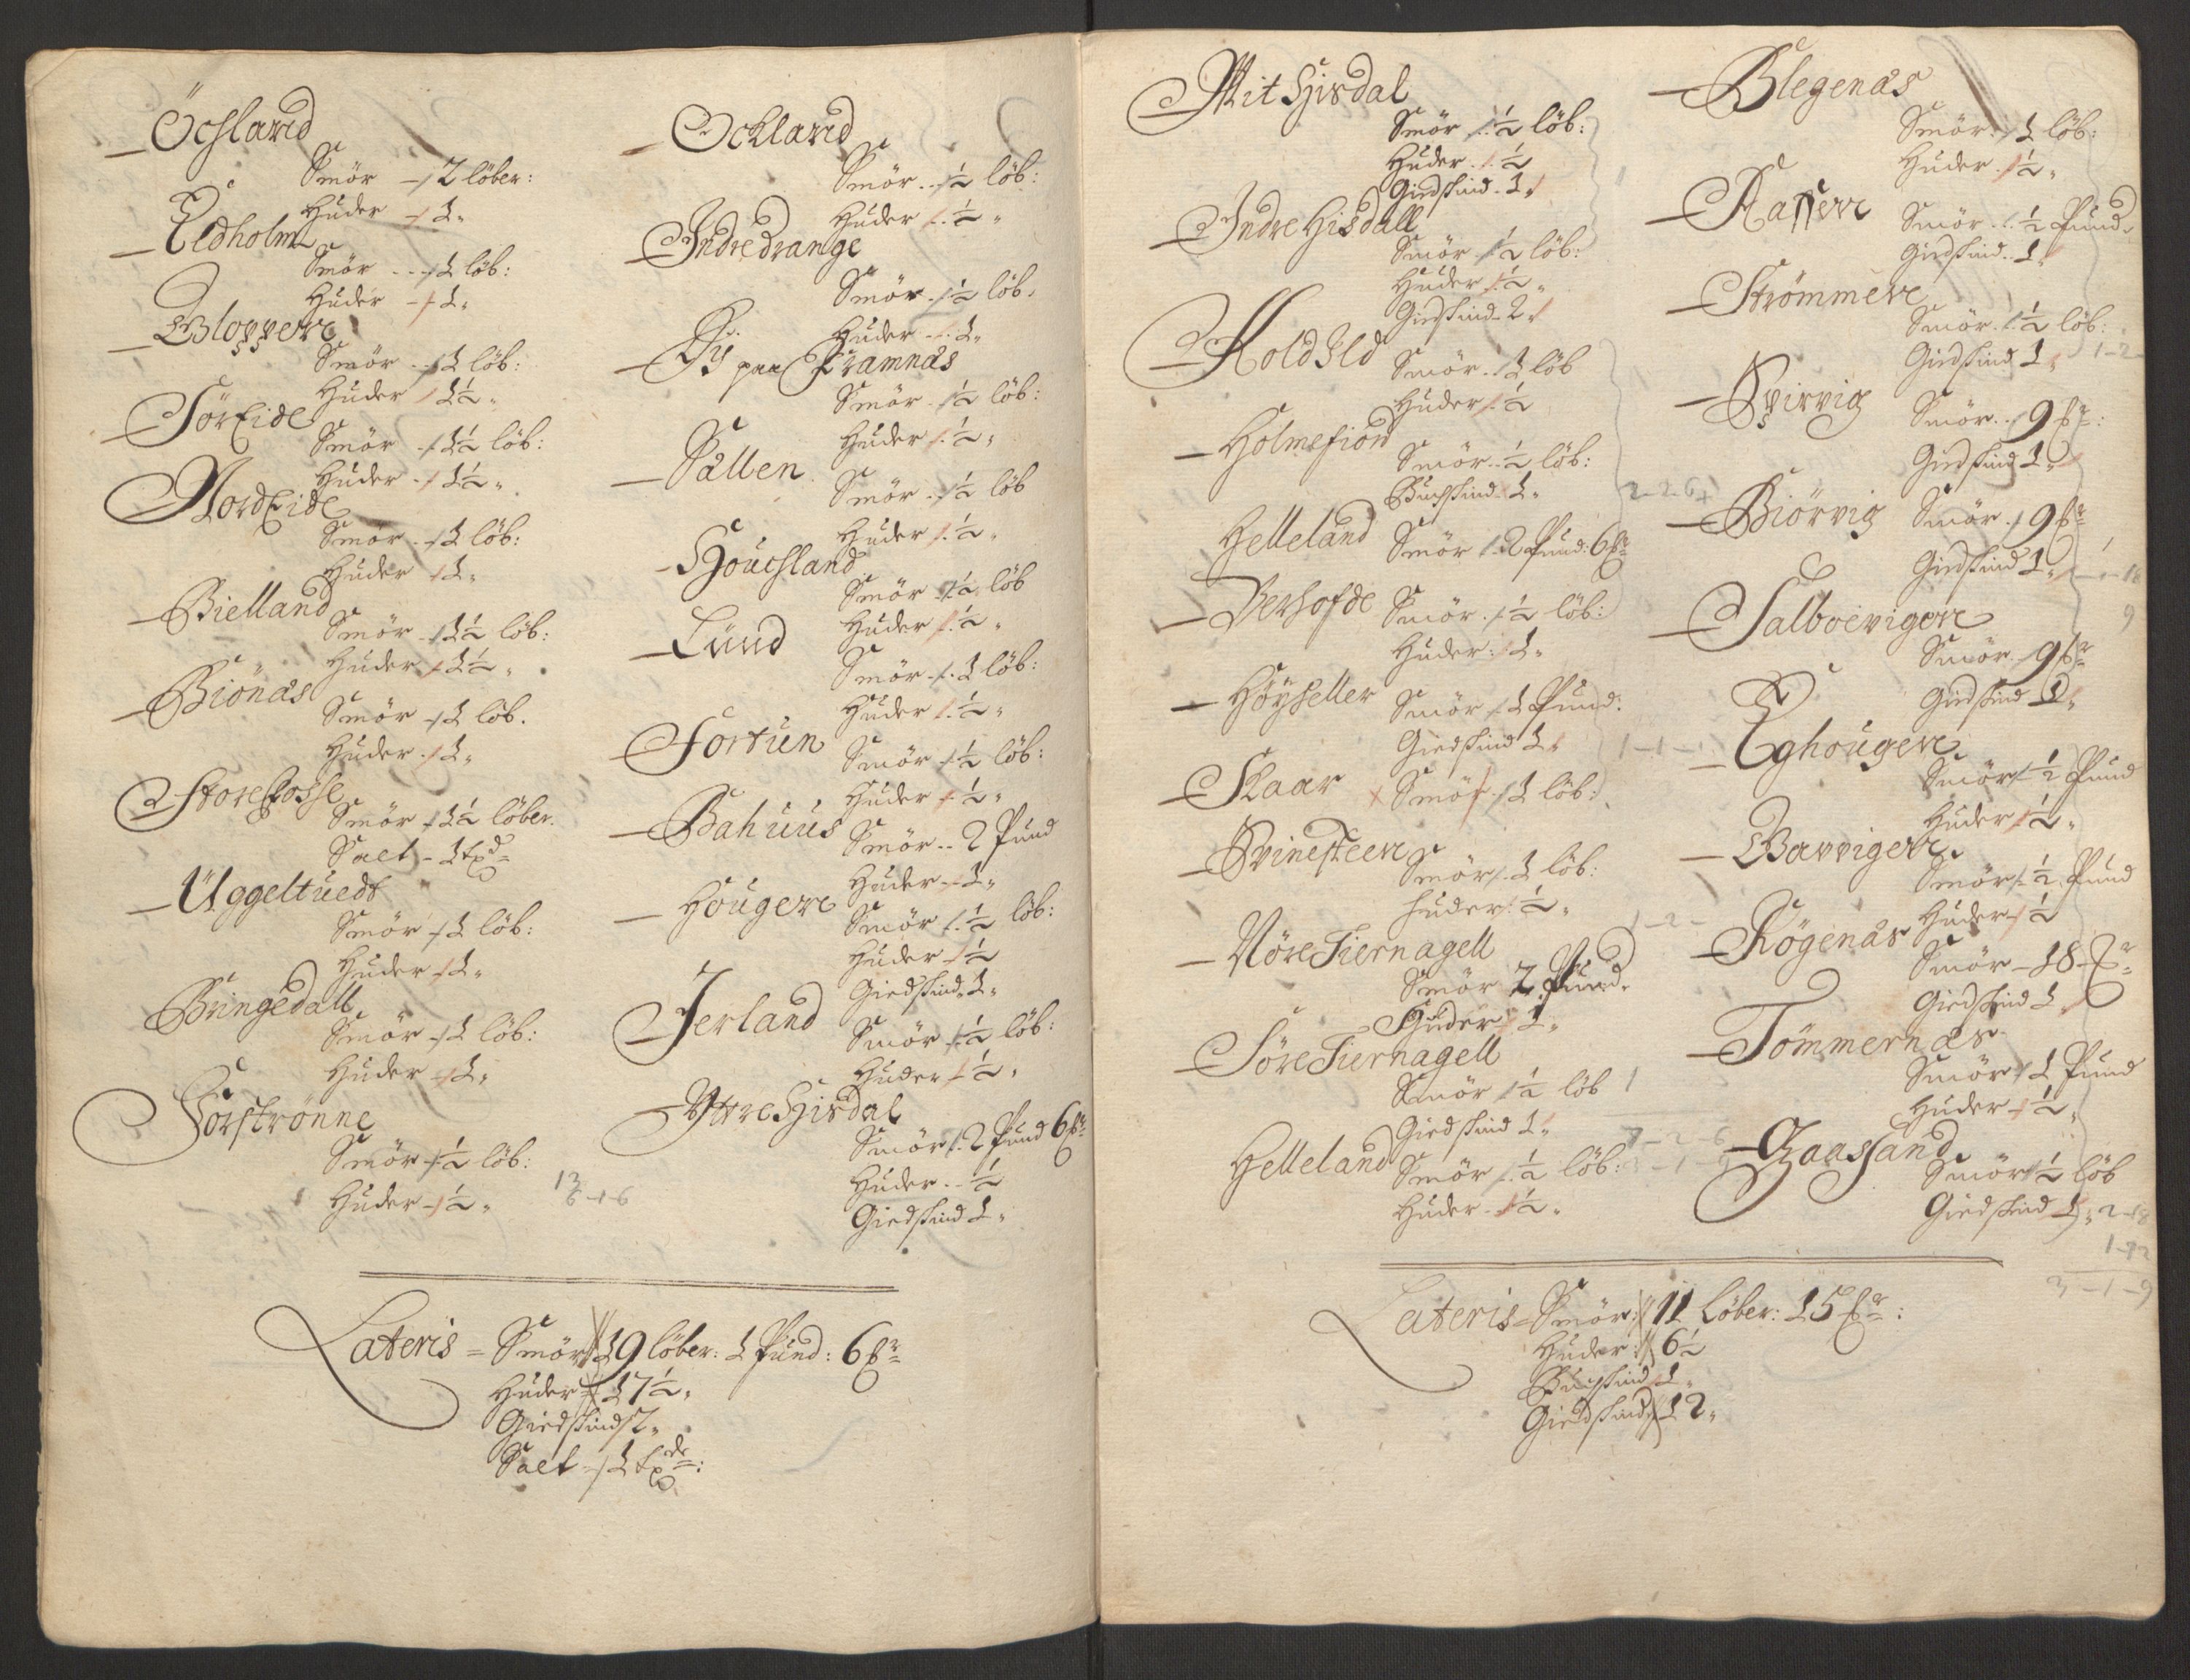 Öchsland
Smör - 2 löber:
Huder - 1
Eldholm
Smör - 1 löb:
Huder - 1
Gloppen
Smör - 1 löb:
Huder 1½
SörEide
Smör - 1½ löb:
Huder - 1½
NordEide
Smör - 1 löb:
Huder 1
Bielland
Smör - 1½ löb:
Huder 1½
Bionæs
Smör - 1 löb.
Huder - 1
StoreFosse
Smör - 1½ löber.
Salt - 1 td
Uggeltuedt
Smör - 1 löb:
Huder 1
Bringedall
Smör - 1 löb:
Huder - 1
Förströnne
Smör ½ löb:
Huder - ½
Ockland
Smör - ½ löb:
Huder - ½
Indredrange
Smör - ½ löb.
Huder - 1
By paa Framnæs
Smör - ½ löb:
Huder - ½
Sällen
Smör - ½ löb
Huder - ½
Houchsland
Smör ½ löb
Huder - ½
Lund
Smör - 1 löb:
Huder - ½
Fortun
Smör - ½ löb:
Huder - ½
Bahuus
Smör - 2 Pund
Huder - 1
Hougen
Smör - ½ löb:
Huder - ½
Giedskind 1
Jerland
Smör - ½ löb:
Huder - ½
YttreHisdal
Smör - 2 Pund 6 ℔r
Huder - ½
Giedskind 1
12
6-1-6
Lateris = Smör 19 löber: 1 Pund: 6 ℔r
Huder 17½
Giedskind 2
Salt - 1 tde:
MitHisdal
Smör - ½ löb:
Huder - ½
Giedskind - 1
Indre Hisdall
Smör ½ löb:
Huder ½
Giedskind - 2
HoldIld
Smör - 1 löb
Huder - ½
Holmefiord
Smör - ½ löb:
Buchskind - 1
Helleland Smör - 2 Pund: 6 ℔r
2-2-6
Verhofde Smör - ½ löb:
Huder: 1
Höysetter Smör 1 Pund:
Giedskind 1
Skaar Smör 1 löb:
Svinesteen
Smör - 1 löb:
Huder ½
NöreSiernagell
Smör 2 Pund.
Huder 1
SöreSiernagell
Smör ½ löb
Giedskind 1
Helleland Smör - ½ löb:
Huder - ½
Blegenæs
Smör - 1 löb:
Huder - ½
Rassen
Smör - ½ Pund
Giedskind - 1
Strömmen
Smör - ½ löb:
Giedskind 1
Spirvig
Smör - 9 ℔r:
Giedskind 1
Biörvig Smör - 9 ℔r
Giedskind 1
Salboevigen
Smör 9 ℔r
Giedskind 1
Eghougen
Smör - ½ Pund
Huder ½
Bavvigen
Smör - ½ Pund
Huder - ½
Rögenæs
Smör - 18 ℔r
Giedskind 1
Tömmernæs
Smör - 1 Pund
Huder - ½
Gaassand
Smör ½ löb
Giedskind 1
2-18
3-1-9
Lateris = Smör: 11 löber: 15 ℔r:
Huder: 6½
Buchskind 1
Giedskind 12